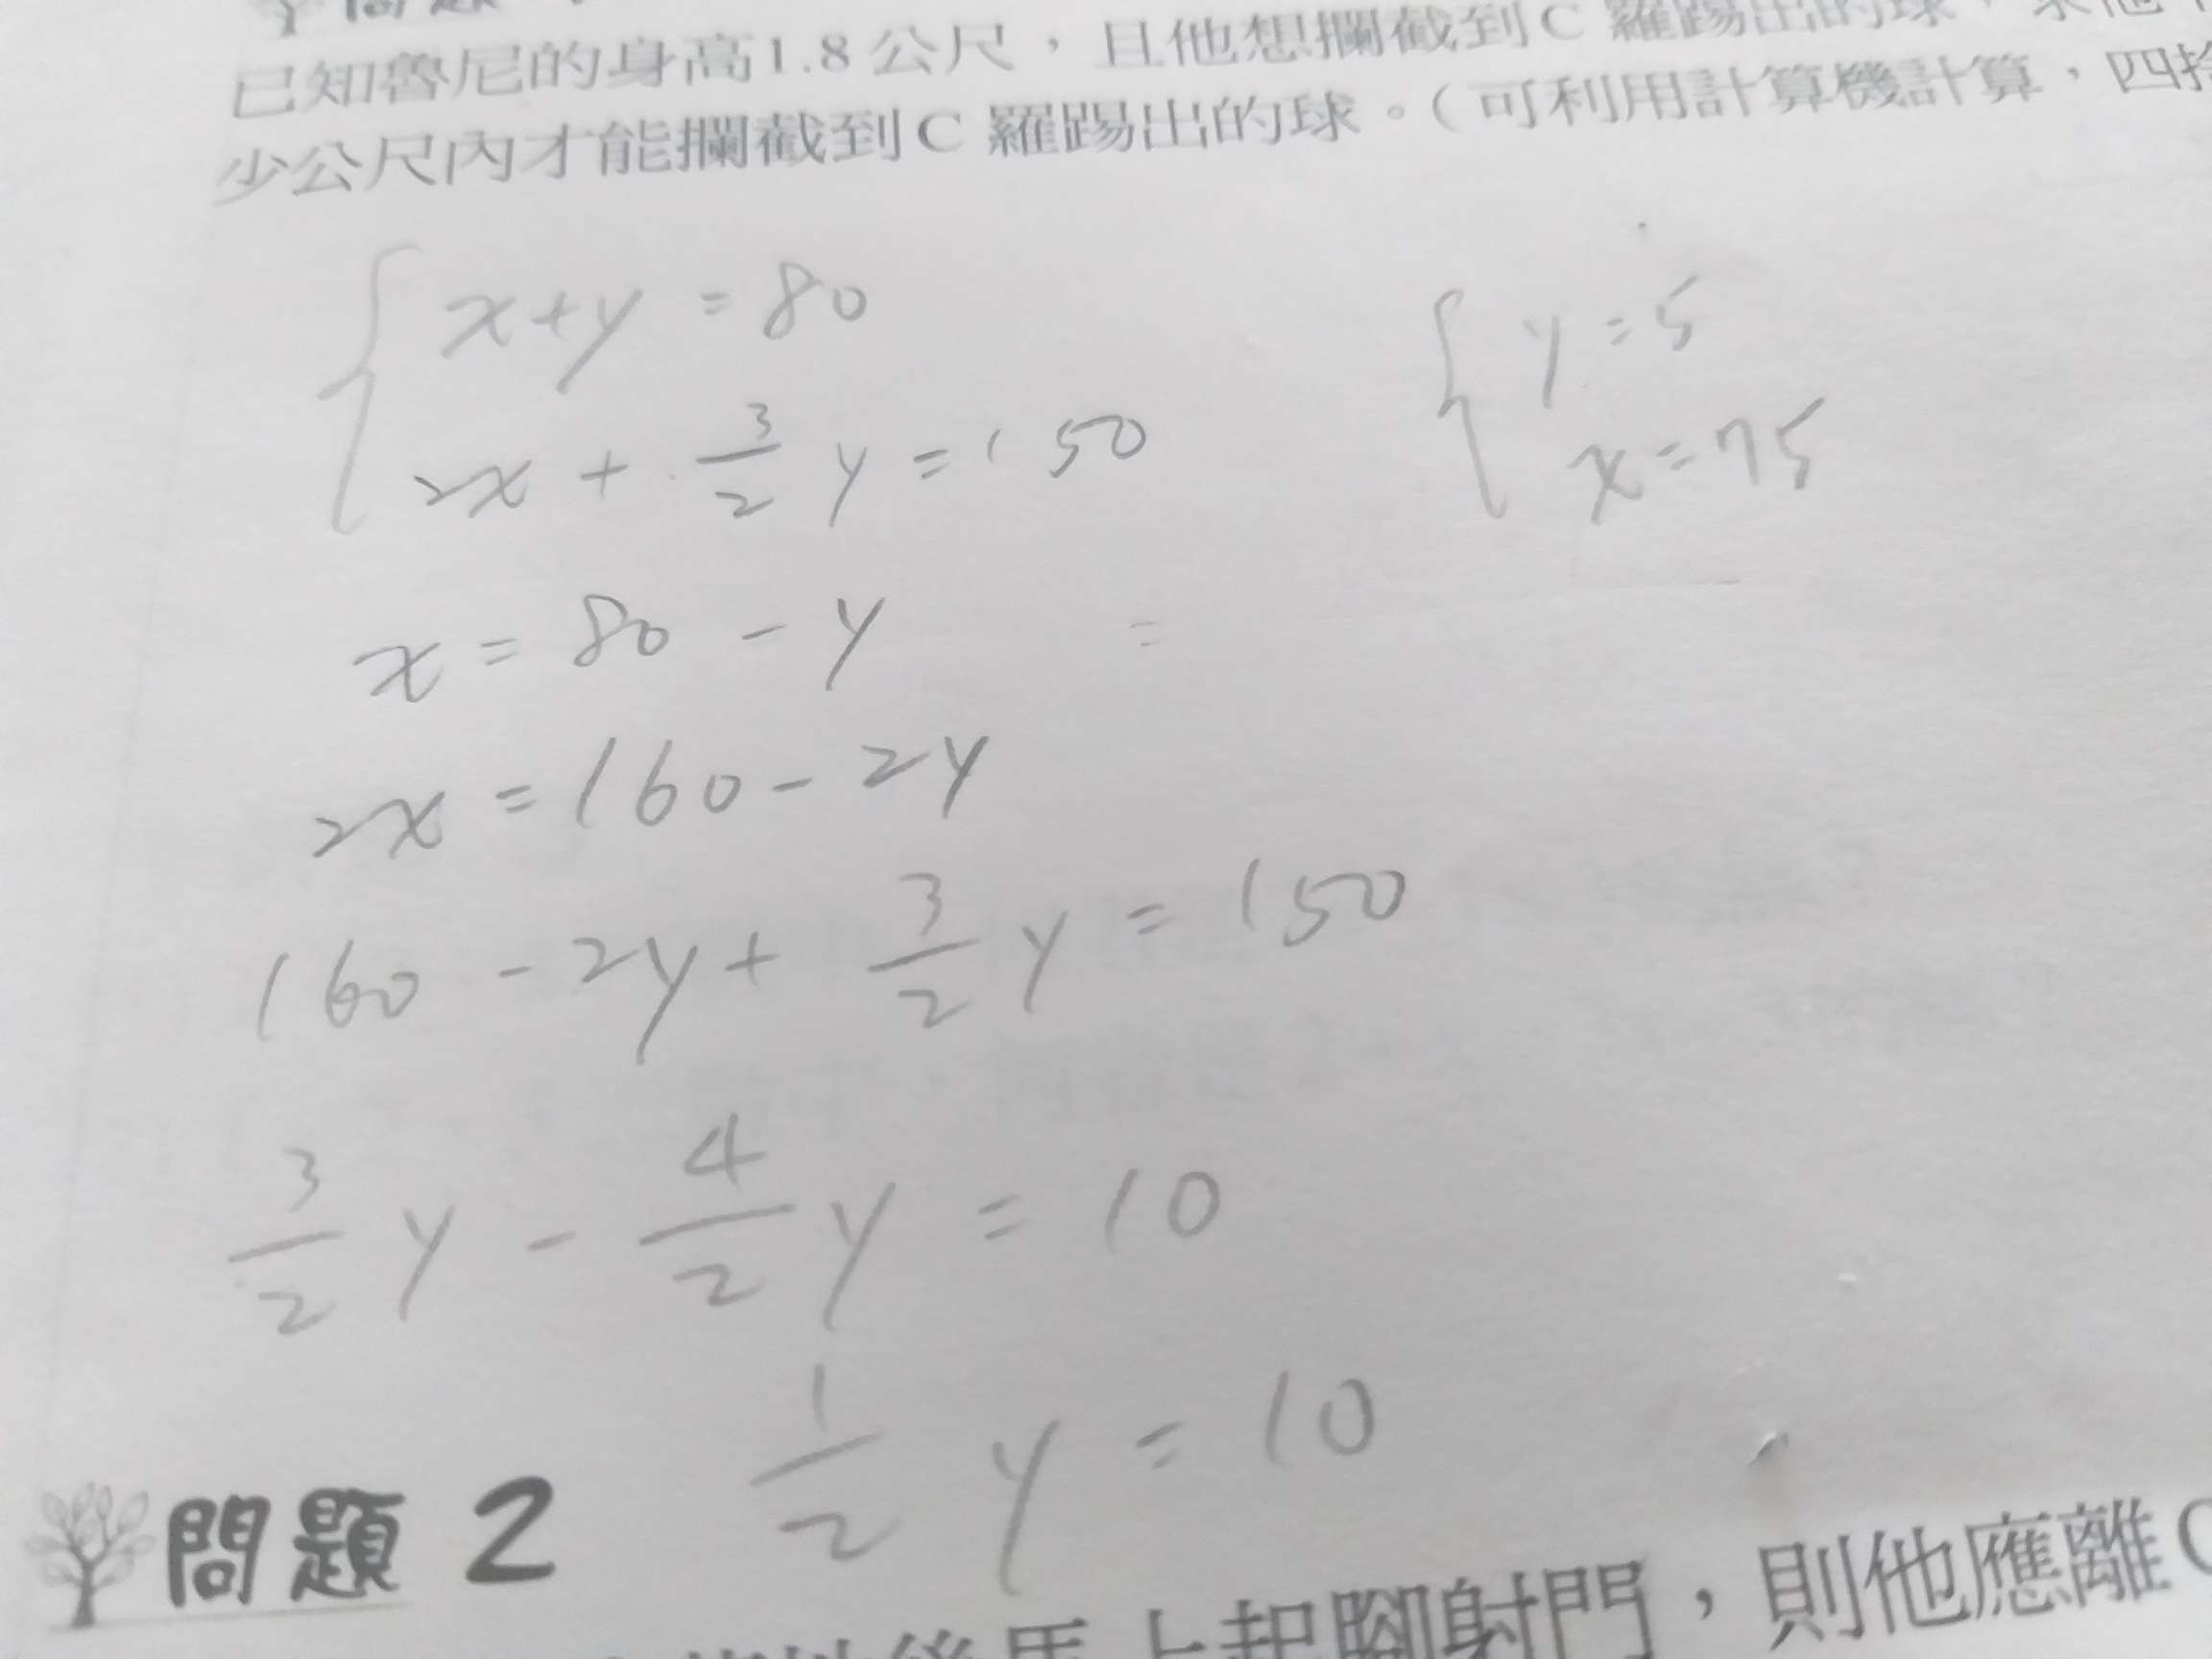 問題
已知魯尼的身高1.8公尺，且他想攔截到C羅踢出的球，求他
少公尺內才能攔截到C羅踢出的球。(可利用計算機計算，四捨
x+y=80
2x+3/2 y=150
y=5
x=75
x=80-y =
2x=160-2y
160-2y+3/2 y=150
3/2 y-4/2 y=10
1/2 y=10
問題2
後馬上起腳射門，則他應離C